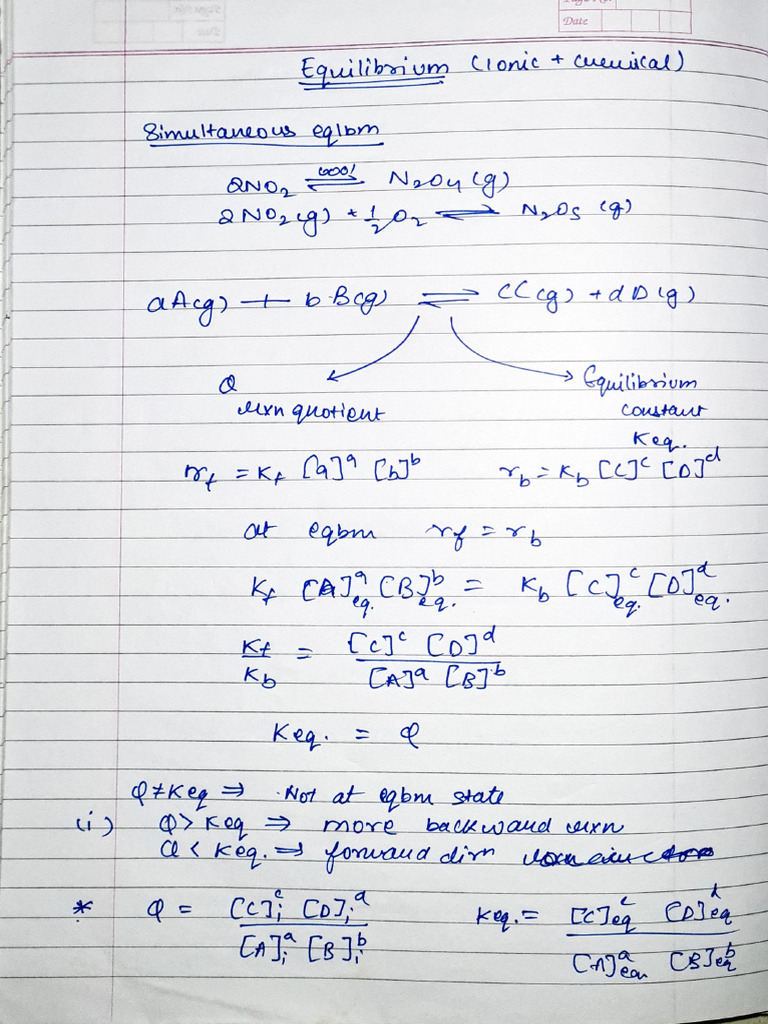 Date
Equilibrium (Ionic + Chemical)
Simultaneous eqlbm
2NO2 ⇌ N2O4 (g)
2NO2 (g) + 1/2 O2 ⇌ N2O5 (g)
aA(g) + b B(g) ⇌ cC (g) + dD (g)
Q → Equilibrium
rxn quotient constant
Keq.
rf = Kf [a]^a [b]^b rb = Kb [C]^c [D]^d
at eqbm rf = rb
Kf [A]^a eq. [B]^b eq. = Kb [C]^c eq. [D]^d eq.
Kf/Kb = [C]^c [D]^d / [A]^a [B]^b
Keq. = Q
Q ≠ Keq ⇒ Not at eqbm state
(i) Q > Keq ⇒ more backward rxn
Q < Keq. ⇒ forward dirn
* Q = [C]i^c [D]i^d / [A]i^a [B]i^b Keq. = [C]eq^c [D]eq^d / [A]^a eqn [B]eq^b